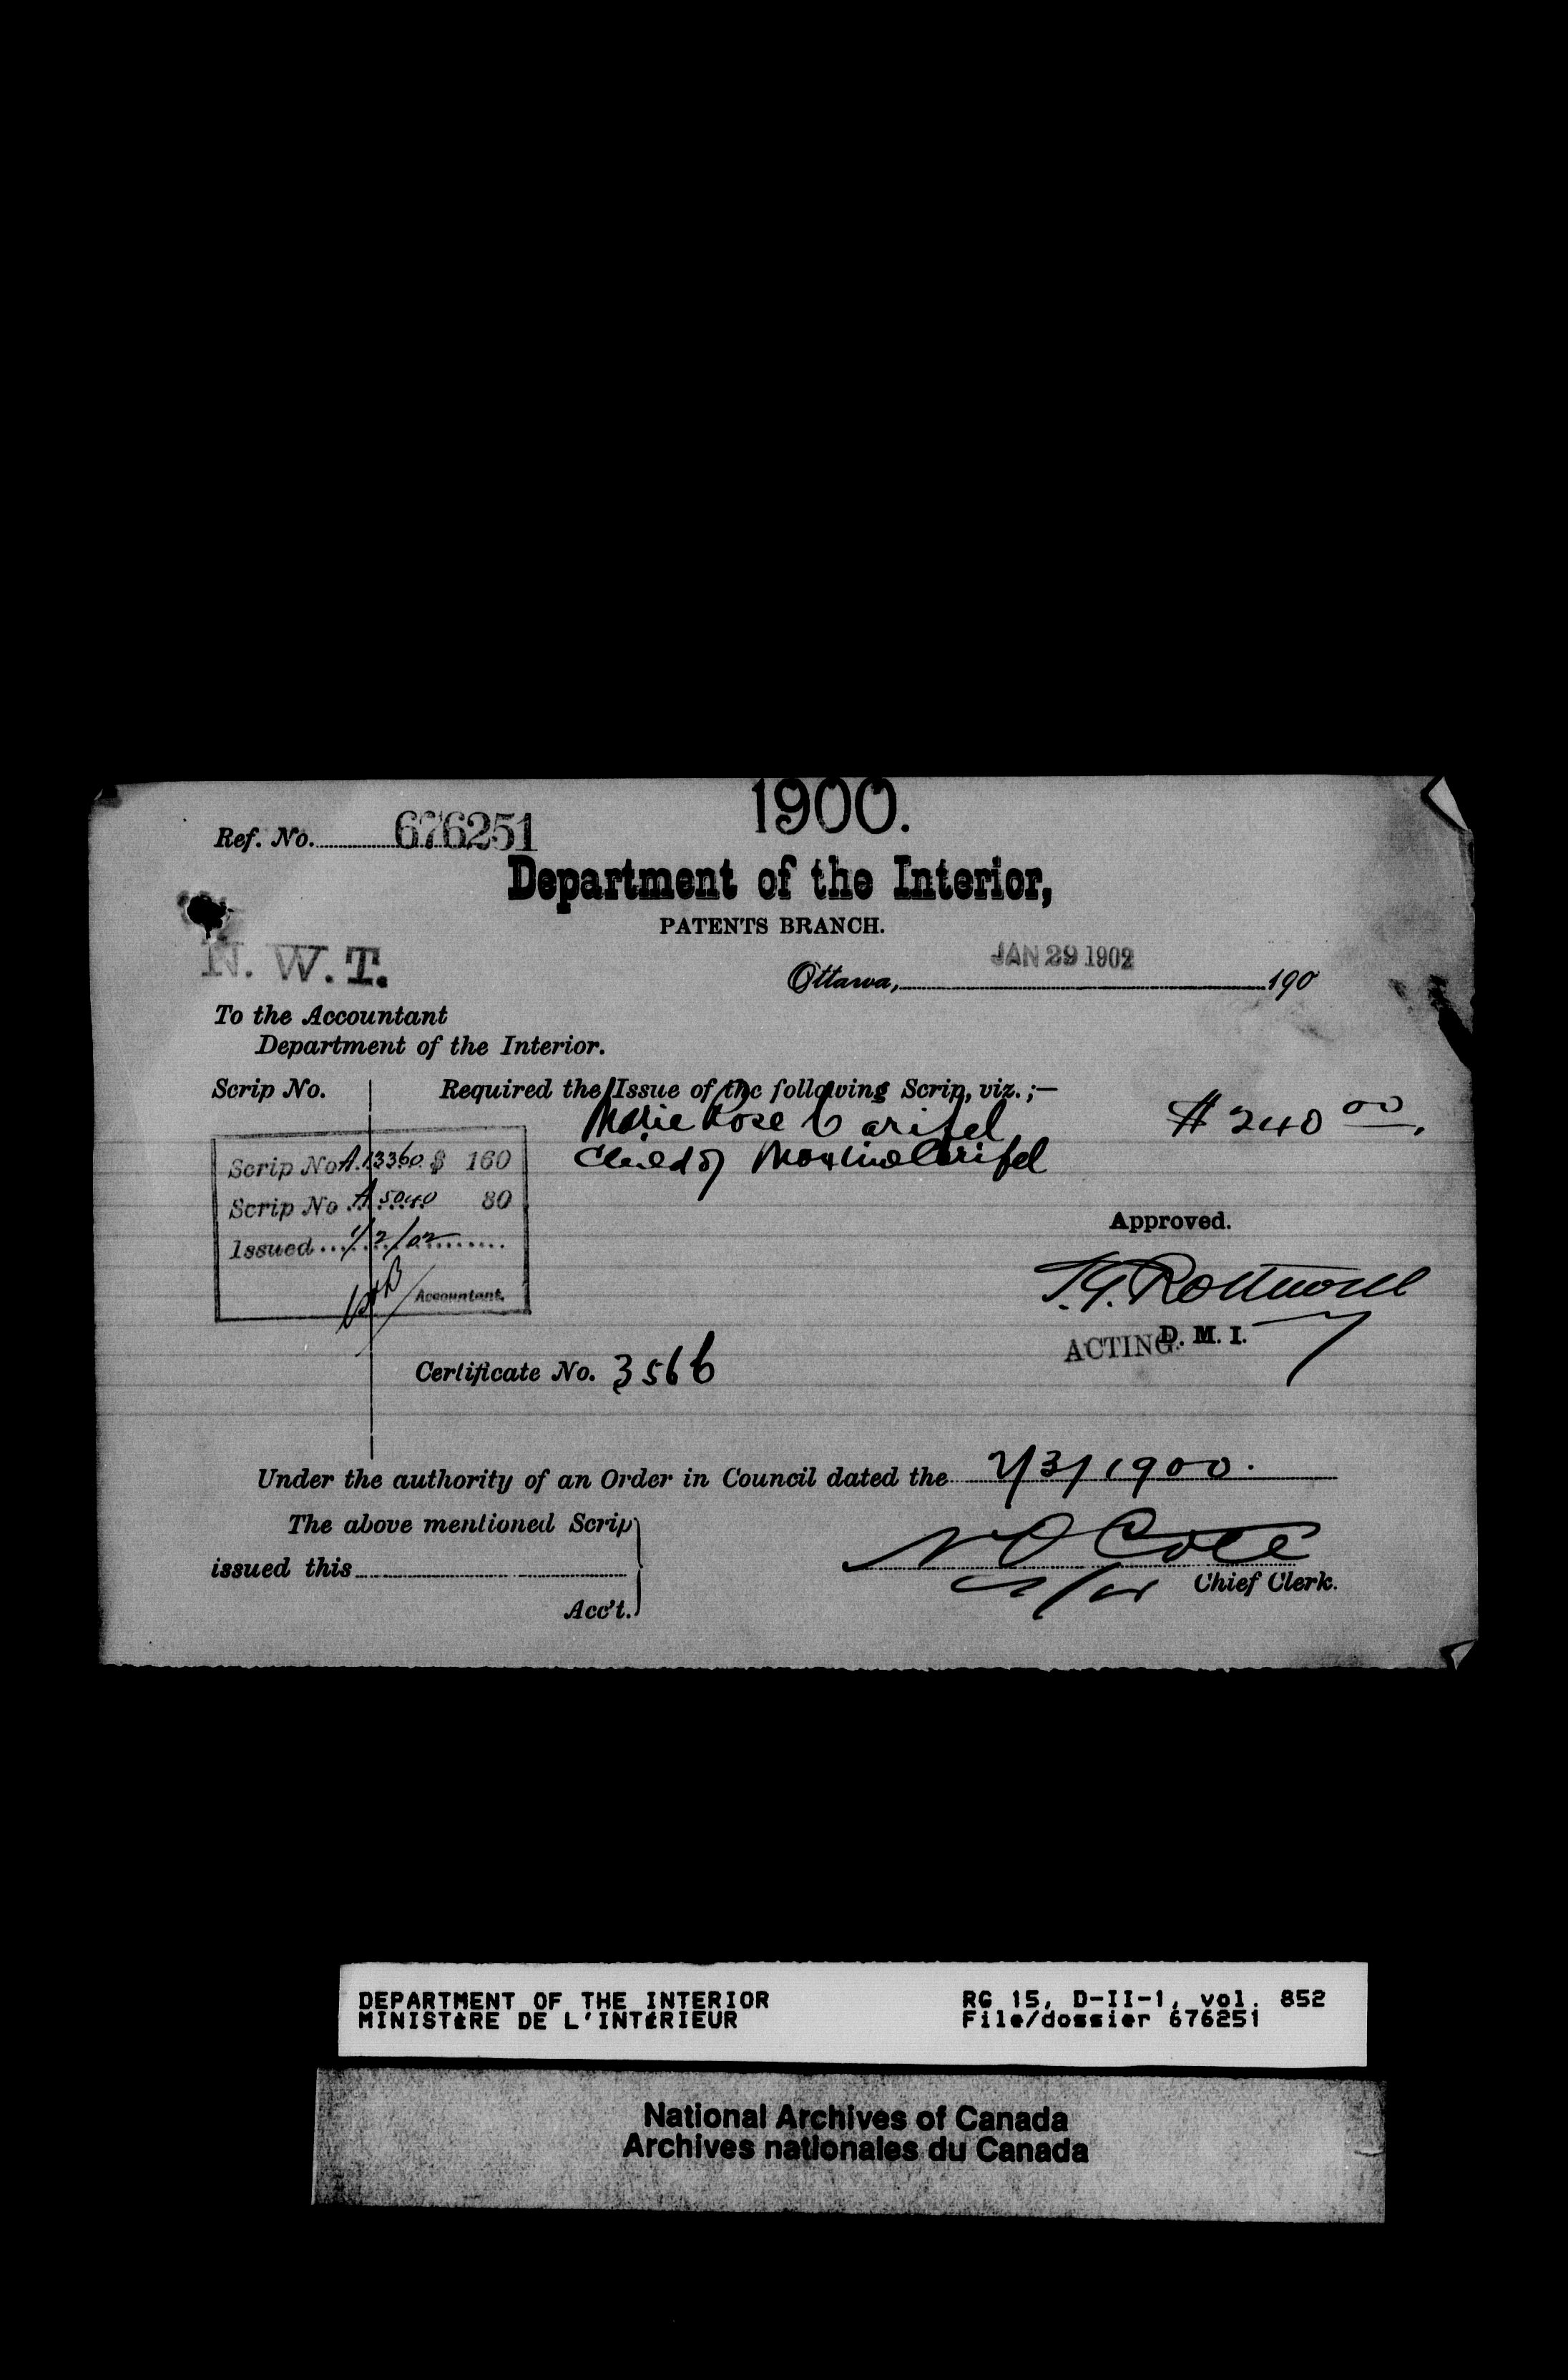 1900.
Ref. No. 676251
Department of the Interior,
PATENTS BRANCH.
N. W. T.
JAN 29 1902
Ottawa, 190
To the Accountant
Department of the Interior.
Scrip No. Required the Issue of the following Scrip, viz.;—
Marie Rose Parifel $ 240 00.
Child of
Scrip No A.13360 $ 160
Scrip No A 5040 80
Issued 1/2/02
Accountant.
Approved.
T.G. Rothwell
ACTING D. M. I.
Certificate No. 3566
Under the authority of an Order in Council dated the 2/3/1900.
The above mentioned Scrip
issued this
Acc't.
N O Cote
Chief Clerk.
DEPARTMENT OF THE INTERIOR RG 15, D-II-1, vol. 852
MINISTÈRE DE L'INTÉRIEUR File/dossier 676251
National Archives of Canada
Archives nationales du Canada